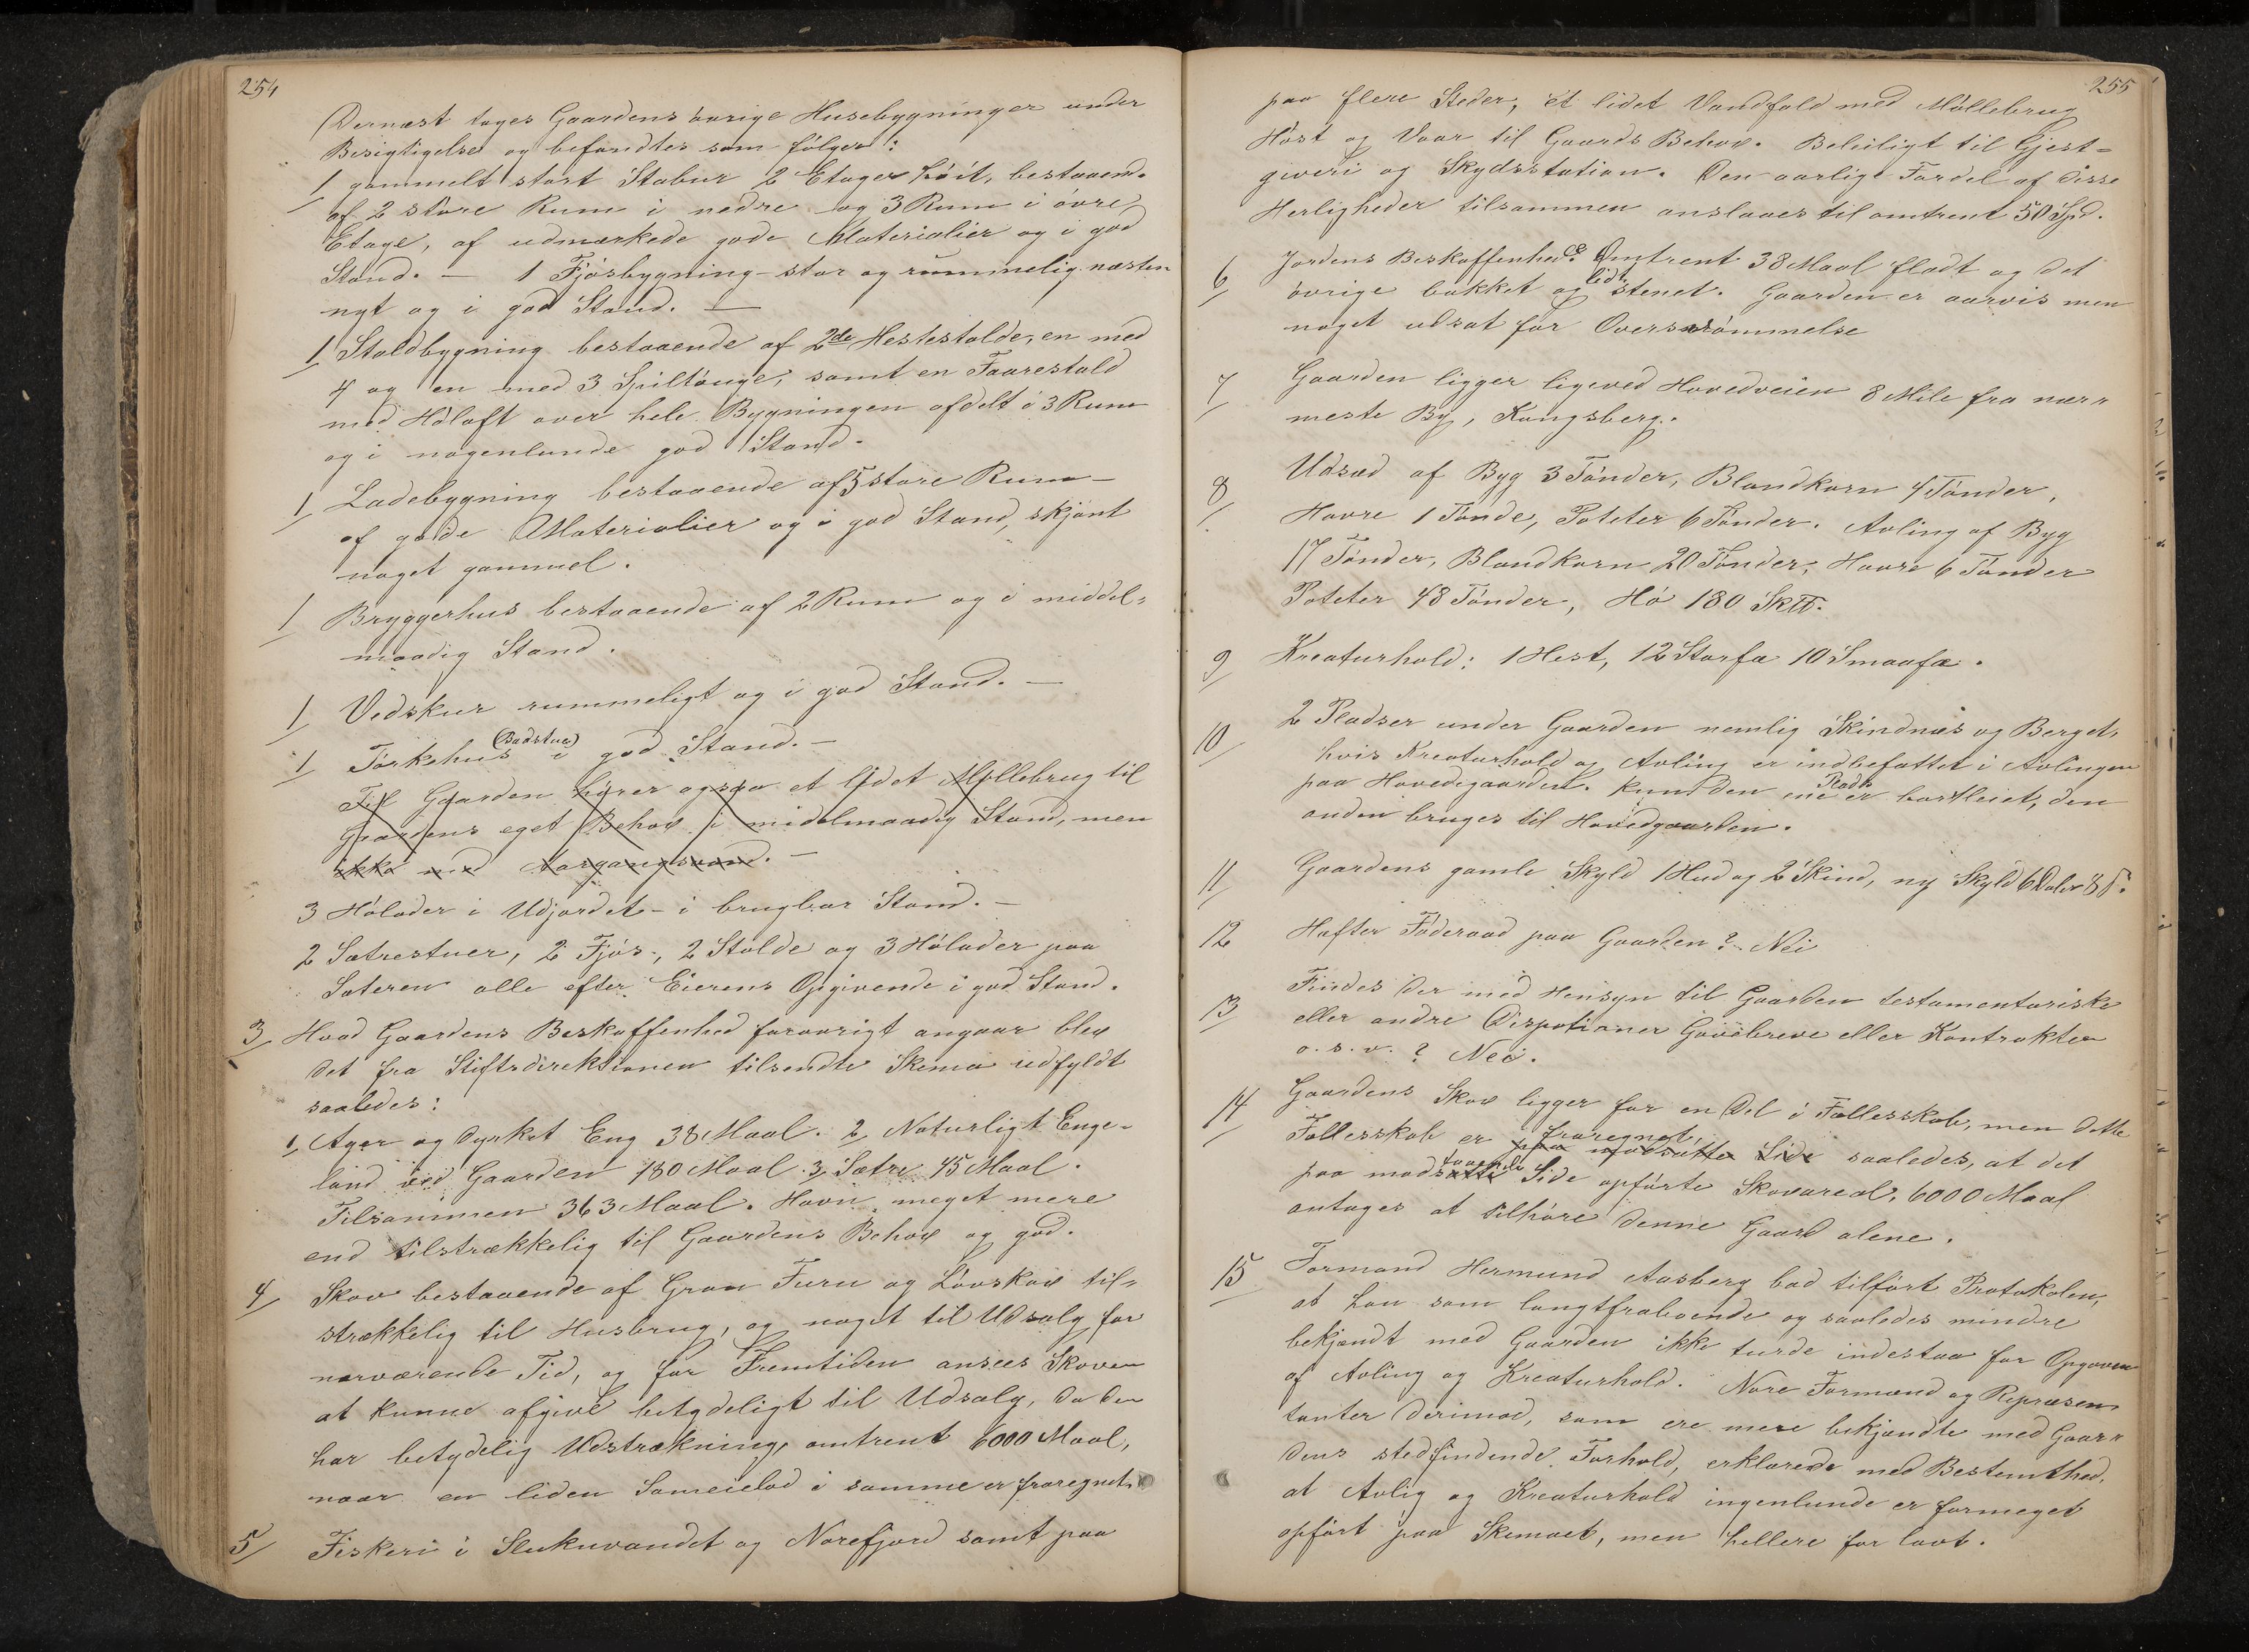 254
Dernæst toges Gaardens øvrige Husebygninger under
Besigtigelse og befandtes som følger:
1 gammelt stort Stabur 2 Etager høit, bestaaend.
af 2 store Rum i nedre og 3 Rum i øvre
Etage, af udmærkede gode Materialier og i god
Stand. — 1 Fjøsbygning - stor og rummelig næsten
nyt og i god Stand. —
1 Staldbygning bestaaende af 2de Hestestalde, en med
4 og en med 3 Spiltouge, samt en Faarestald
med Høloft over hele Bygningen afdelt i 3 Rum
og i nogenlunde god Stand.
1 Ladebygning bestaaende af 5 store Rum —
af gode Materialier og i god Stand, skjønt
noget gammel.
1 Bryggerhus bestaaende af 2 Rum og i middel-
maadig Stand.
1 Vedskur rummeligt og i god Stand. —
1 Tørkehus (Badstue) i god Stand. —
Til Gaarden hører ogsaa et lidet Møllebrug til
Gaardens eget Behov i midelmaadig Stand, men
ikke med Aargangsvand. —
3 Hølader i Udjordet - i brugbar Stand. —
2 Sætrestuer, 2 Fjøs, 2 Stalde og 3 Hølader paa
Sæteren alle efter Eierens Opgivende i god Stand.
3 Hvad Gaardens Beskaffenhed forøvrigt angaar blev
det fra Stiftsdirektionen tilsendte Skema udfyldt
saaledes:
1, Ager og dyrket Eng 38 Maal. 2, Naturligt Enge-
land ved Gaarden 180 Maal. 3, Sætre 45 Maal.
Tilsammen 363 Maal. Havn meget mere
end tilstrækkelig til Gaardens Behov og god.
4 Skov bestaaende af Gran Furu og Løvskov til-
strækkelig til Husbrug, og noget til Udsalg for
nærværende Tid, og for Fremtiden ansees Skoven
at kunne afgive betydeligt til Udsalg, da den
har betydelig Udstrækning, omtrent 6000 Maal,
naar en liden Sameielod i samme er fraregnet.
5 Fiskeri i Slukuvandet og Norefjord samt paa
255
paa flere Steder, et lidet Vandfald med Møllebrug
Høst og Vaar til Gaards Behov. Beleiligt til Gjest-
giveri og Skydsstation. Den aarlige Fordel af disse
Herligheder tilsammen anslaaes til omtrent 50 Spd.
6 Jordens Beskaffenhed? Omtrent 38 Maal fladt og det
øvrige bakket og lidt stenet. Gaarden er aarvis men
noget udsat for Oversvømmelse
7 Gaarden ligger ligeved Hovedveien 8 Mile fra nær-
meste By, Kongsberg.
8 Udsæd af Byg 3 Tønder, Blandkorn 4 Tønder,
Havre 1 Tønde, Poteter 6 Tønder. Avling af Byg
17 Tønder, Blandkorn 20 Tønder, Havre 6 Tønder
Poteter 48 Tønder, Hø 180 Sk℔.
9 Kreaturhold: 1 Hest, 12 Storfæ 10 Smaafæ.
10 2 Pladser under Gaarden nemlig Skindnæs og Berget,
hvis Kreaturhold og Avling er indbefattet i Avlingen
paa Hovedgaarden. Kun den ene Plads er bortleiet, den
anden bruges til Hovedgaarden.
11 Gaardens gamle Skyld 1 Hud og 2 Skind, ny Skyld 6 Daler
12 Hefter Føderaad paa Gaarden? Nei
13 Findes der med Hensyn til Gaarden testamentariske
eller andre Dispotioner Gavebreve eller Kontrakter
o. s. v.? Nei.
14 Gaardens Skov ligger for en Del i Fællesskab, men dette
Fællesskab er fraregnet, paa modsatte Side saaledes, at det
paa modsatte staaende Side opførte Skovareal, 6000 Maal
antages at tilhøre denne Gaard alene.
15 Formand Hermund Aasberg bad tilført Protokolen,
at han som langtfraboende og saaledes mindre
bekjendt med Gaarden ikke turde indestaa for Opgaven
af Avling og Kreaturhold. Nore Formænd og Repræsen-
tanter derimod, som ere mere bekjendte med Gaar-
dens stedfindende Forhold, erklærede med Bestemthed,
at Avlig og Kreaturhold ingenlunde er formeget
opført paa Skemaet, men hellere for lavt.